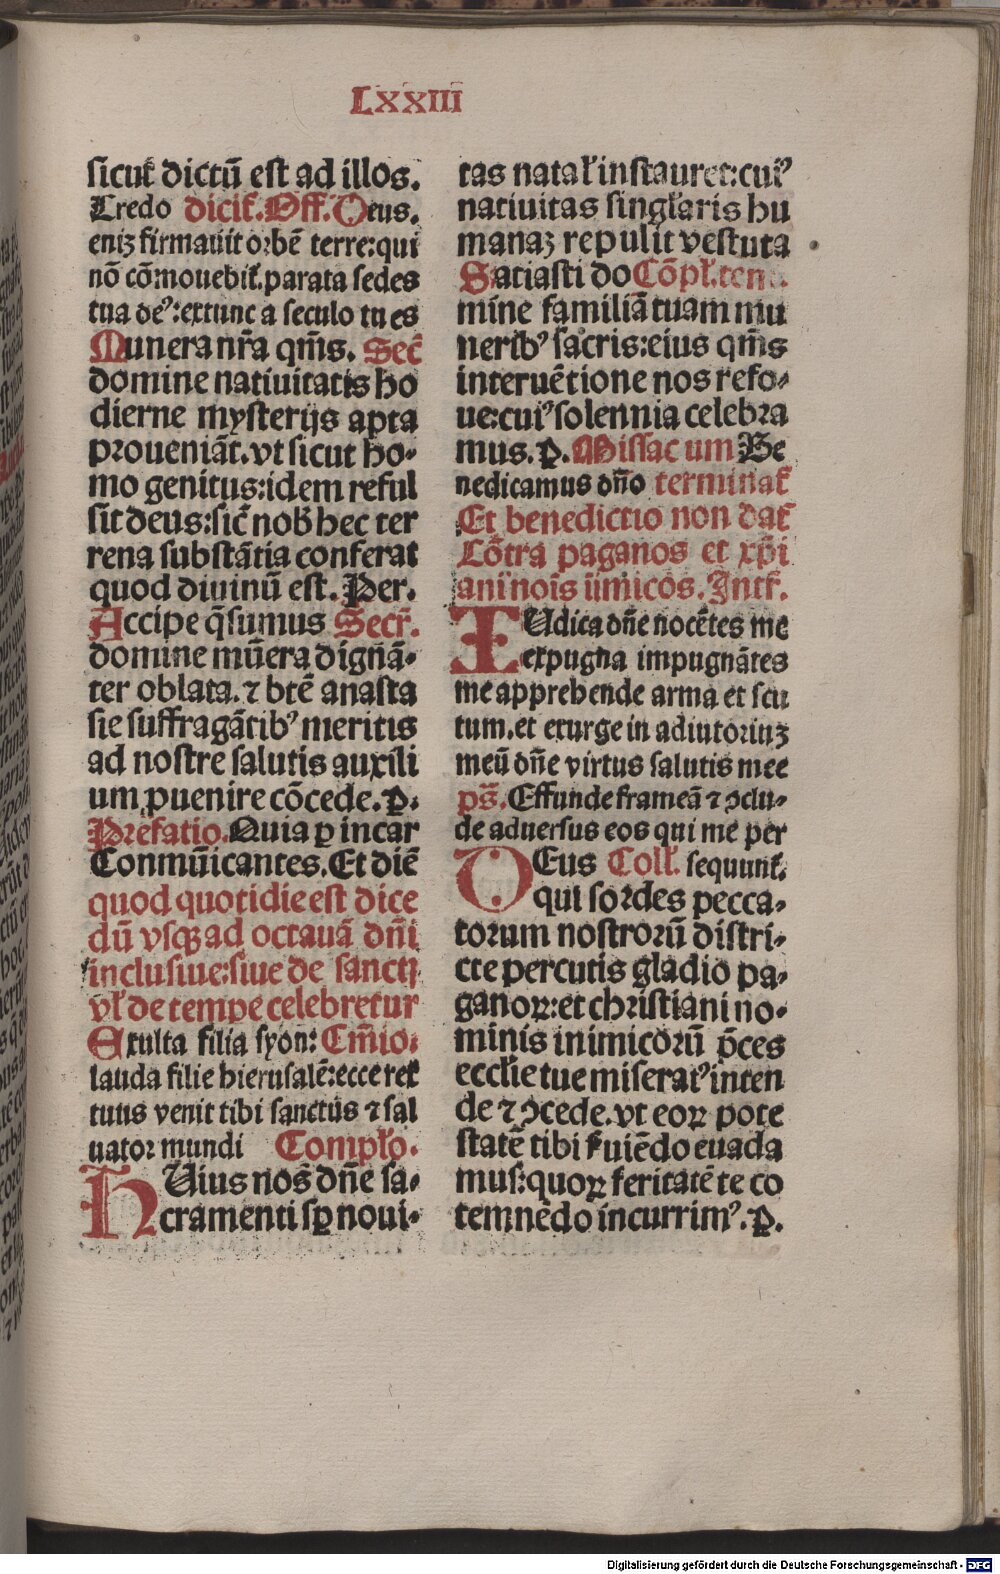 LXXIII
sicut̄ dictū est ad illos.
Credo dicit̄. Off. Deus.
eniꝫ firmauit orbē terre: qui
nō cōmouebit̄. parata sedes
tua deꝰ: extunc a seculo tu es
Munera nr̄a qm̄s. Sec̄
domine natiuitatis ho
dierne mysterijs apta
proueniāt. vt sicut ho-
mo genitus: idem reful
sit deus: sic̄ nob̄ hec ter
rena substātia conferat
quod diuinū est. Per.
Accipe q̄sumus Secr̄.
domine mūera dignā-
ter oblata. ⁊ btē anasta
sie suffragātibꝰ meritis
ad nostre salutis auxili
um ꝓuenire cōcede. P.
Prefatio. Quia ꝑ incar
Conmūicantes. Et diē
quod quotidie est dice
dū vsqꝫ ad octauā dn̄i
inclusiue: siue de sanctꝭ
vl̄ de tempe celebretur
Exulta filia syon: Cm̄io.
lauda filie hierusalē: ecce rex
tuus venit tibi sanctus ⁊ sal
uator mundi Complo.
HUius nos dn̄e sa-
cramenti sꝑ noui-
tas natal̄ instauret: cuiꝰ
natiuitas singl̄aris hu
manaꝫ repulit vestuta
Satiasti do Cōpl̄. tem
mine familiā tuam mu
neribꝰ sacris: eius qm̄s
interuētione nos refo-
ue: cuiꝰ solennia celebra
mus. P. Missac um Be
nedicamus dn̄o terminat̄
Et benedictio non dat̄
Cōtra paganos et xp̄i
ani nois̄ iimicos. Intt̄.
IUdica dn̄e nocētes me
expugna impugnātes
me apprehende arma et scu
tum. et exurge in adiutoriuꝫ
meū dn̄e virtus salutis mee
ps̄. Effunde frameā ⁊ ꝯclu-
de aduersus eos qui me per
DEus Coll̄. sequunt̄.
qui sordes pecca-
torum nostrorū distri-
cte percutis gladio pa-
ganoꝝ: et christiani no-
minis inimicorū p̄ces
eccl̄ie tue miseratꝰ inten
de ⁊ ꝯcede. vt eoꝝ pote
statē tibi s̄uiēdo euada
mus: quoꝝ feritatē te co
temnēdo incurrimꝰ. P.
Digitalisierung gefördert durch die Deutsche Forschungsgemeinschaft - DFG